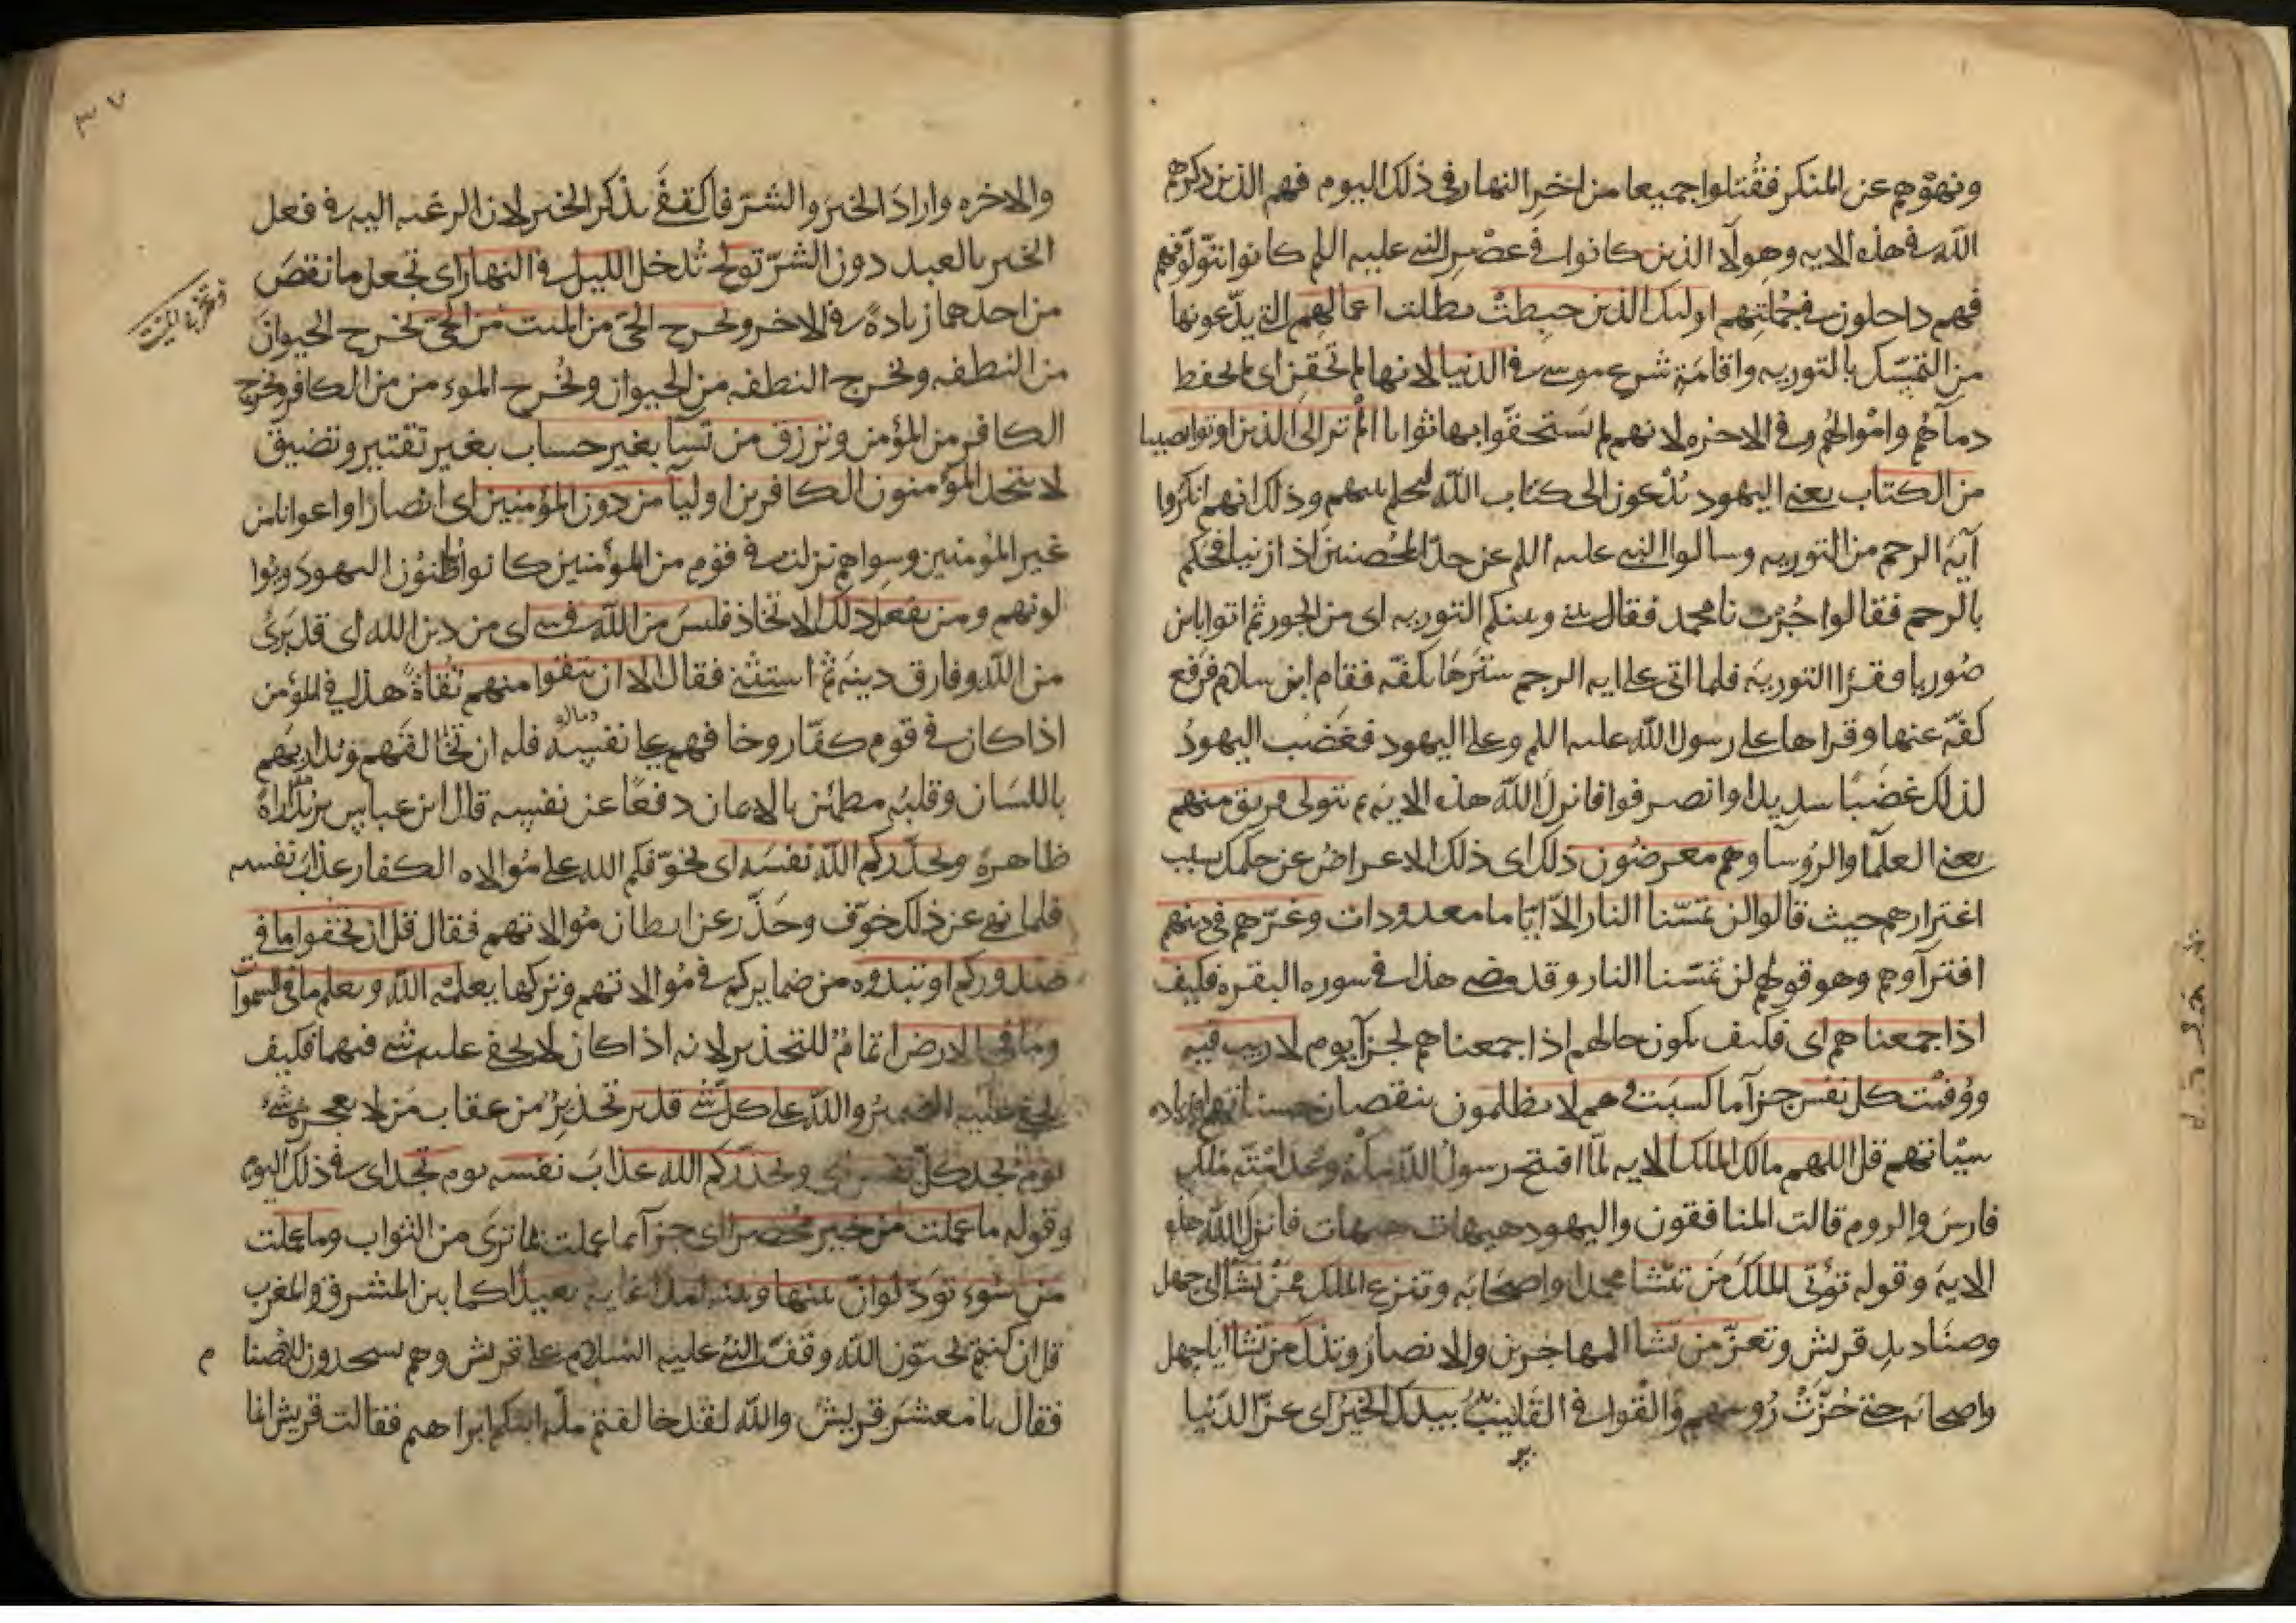 ونهوهم عن المنكر فقتلوا جميعا من اخر النهار في ذلك اليوم فهم الذين ذكرهم
الله في هذه الايه وهولا الذين كانوا في عصر النبي عليه اللم كانوا يتولونهم
فهم داخلون في جملتهم اوليك الذين حبطت بطلت اعمالهم التي يدعونها
من التمسك بالتوريه واقامة شرع موسى في الدنيا لانها لم تحقن اي لم تحفظ
دمآهم واموالهم وفي الاخره لانهم لم يستحقوا بها ثوابا الم تر الى الذين اوتوا نصيبا
من الكتاب يعني اليهود يُدعون الى كتاب الله ليحكم بينهم وذلك انهم انكروا
آية الرجم من التوريه وسالوا النبي عليه اللم عن حدّ المُحصنين اذا زنيا فحكم
بالرجم فقالوا جُرت يا محمد فقال بيني وبينكم التوريه اي من الجور ثم اتوا بابن
صُوريا وقرا التورية فلما اتى على ايه الرجم سترها بكفّه فقام ابن سلام فرفع
كفّه عنها وقراها على رسول الله عليه اللم وعلى اليهود فغضب اليهودُ
لذلك غضبًا شديدا وانصرفوا فانزل الله هذه الاية ثم يتولى فريق منهم
يعني العلمآ والرُوسآ وهم معرضون ذلك اي ذلك الاعراضُ عن حكمك بسبب
اغترارهم حيث قالوا لن تمسّنا النار الّا ايّاما معدودات وغرّهم في دينهم
افترآوهم وهو قولهم لن تمسّنا النار وقد مضى هذا في سوره البقره فكيف
اذا جمعناهم اي فكيف يكون حالهم اذا جمعناهم لجزآ يوم لا ريب فيه
ووُفيت كل نفس جزآ ما كسبت وهم لا يظلمون بنقصان حسناتهم او زياده
سيّاتهم قل اللهم مالك الملك الايه لمّا افتتح رسول الله مكة ووعد امته ملك
فارس والروم قالت المنافقون واليهود هيهات هيهات فانزل الله هذه
الاية وقوله تؤتي الملك من تشا محمدا واصحابه وتنزع الملك ممّن تشآ ابي جهل
وصناديد قريش وتعزّ من تشا المهاجرين والانصار وتذل من تشا ابا جهل
واصحابه حتى حُزّت رُوسهم وأُلقوا في القليب بيدك الخيرُ اي عزّ الدُنيا
٣٧
والاخره واراد الخير والشرّ فاكتفى بذكر الخير لان الرغبه اليه في فعل
الخير بالعبد دون الشرّ تولج تُدخل الليل في النهار اي تجعل ما نقص
من احدهما زيادةً في الاخر وتخرج الحيّ من الميت من الحيّ تخرج الحيوان
وتخرج الميت
من النطفه وتخرج النطفه من الحيوان وتُخرج المومن من الكافر وتخرج
الكافر من المؤمن وترزق من تشآ بغير حساب بغير تقتير وتضييق
لا يتخذ المؤمنون الكافرين اوليآ من دون المؤمنين اي انصارًا واعوانا من
غير المؤمنين وسواهم نزلت في قوم من المؤمنين كانوا يباطنون اليهود ويوا
لونهم ومن يفعل ذلك الاتخاذ فليس من الله في شي اي من دين الله اي قد بَرئ
من الله وفارق دينه ثم استثنى فقال الا ان تتقوا منهم تُقاةً هذا في المؤمن
اذا كان في قوم كفّار وخافهم على نفسه وماله فله ان يخالفهم ويداريهم
باللسان وقلبُه مطمئن بالايمان دفعًا عن نفسه قال ابن عباس يريد مُداراةً
ظاهرةً ويحذّركم الله نفسه اي يخوّفكم الله على مُوالاه الكفار عذاب نفسه
فلما نهى عن ذلك خوّف وحذّر عن ابطان مُوالاتهم فقال قل ان تخفوا ما في
صدوركم او تبدوه من ضمايركم في مُوالاتهم وتركها يعلمه الله ويعلم ما في السموات
وما في الارض اتمامٌ للتحذير لانه اذا كان لا يخفى عليه شي فيهما فكيف
يخفى عليه الضميرُ والله على كل شي قدير تحذيرٌ من عقاب من لا يعجزه شي
يوم تجد كلّ نفس اي ويحذّركم الله عذاب نفسه يوم تجد اي في ذلك اليوم
وقوله ما عملت من خير مُحضرا اي جزآ ما عملت بما ترى من الثواب وما عملت
من سُوء تودّ لو انّ بينها وبينه امدا غايه بعيدًا كما بين المشرق والمغرب
قل ان كنتم تحبّون الله وقف النبي عليه السلام على قريش وهم يسجدون للاصنا م
فقال يا معشر قريش والله لقد خالفتم ملّة ابيكم ابراهيم فقالت قريش انما